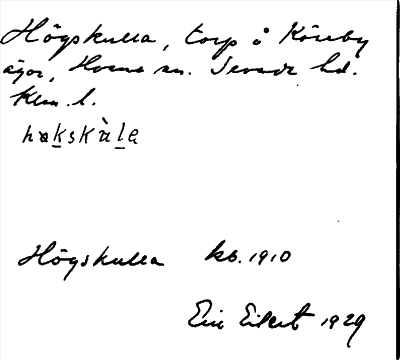 Högskulla, torp å Köreby
ägor, Hvena sn. Sevede hd.
Klm. l.
høkskùle
Högskulla kb. 1910
Eric Eilert 1929